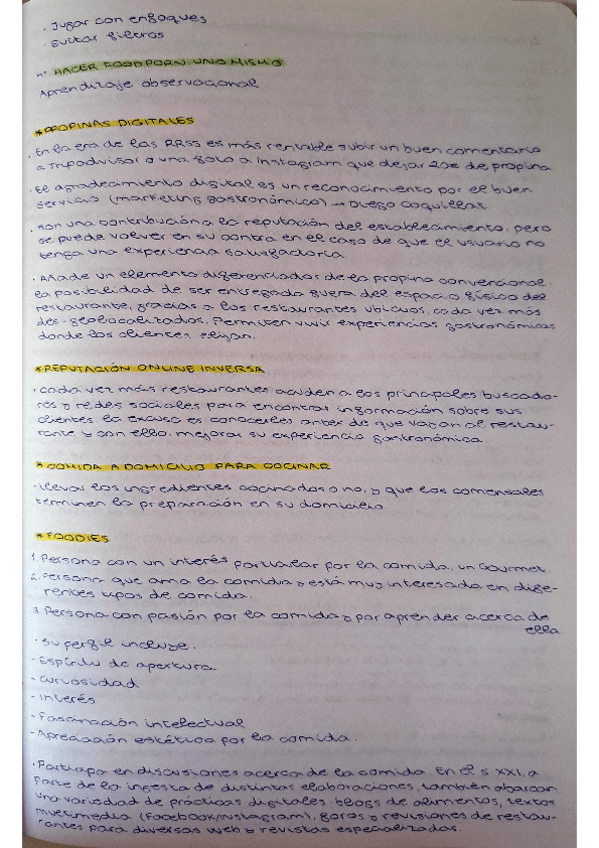 · Jugar con enfoques
· Evitar filtros
nº HACER FOODPORN UNO MISMO
Aprendizaje observacional
*PROPINAS DIGITALES
· En la era de las RRSS es más rentable subir un buen comentario
a Tripadvisor o una foto a Instagram que dejar 20€ de propina
· El agradecimiento digital es un reconocimiento por el buen
servicio (marketing gastronómico) → Diego Coquillat
· Son una contribución a la reputación del establecimiento, pero
se puede volver en su contra en el caso de que el usuario no
tenga una experiencia satisfactoria.
· Añade un elemento diferenciador de la propina convencional.
la posibilidad de ser entregada fuera del espacio físico del
restaurante, gracias a los restaurantes ubicuos, cada vez más
des-geolocalizados. Permiten vivir experiencias gastronómicas
donde los clientes elijan.
*REPUTACIÓN ONLINE INVERSA
· Cada vez más restaurantes acuden a los principales buscado-
res y redes sociales para encontrar información sobre sus
clientes la excusa es conocerles antes de que vayan al restau-
rante y con ello, mejorar su experiencia gastronómica.
*COMIDA A DOMICILIO PARA COCINAR
· llevar los ingredientes cocinados o no, y que los comensales
terminen la preparación en su domicilio
*FOODIES
1. Persona con un interés particular por la comida, un Gourmet
2. Persona que ama la comida y está muy interesada en dife-
rentes tipos de comida.
3. Persona con pasión por la comida y por aprender acerca de
ella
· Su perfil incluye.
- Espíritu de apertura
- Curiosidad
- Interés
- Fascinación intelectual
- Apreciación estética por la comida.
· Participa en discusiones acerca de la comida En el s XXI, a
parte de la ingesta de distintas elaboraciones, también abarcan
una variedad de prácticas digitales: blogs de alimentos, textos
multimedia (Facebook/Instagram), foros y revisiones de restau-
rantes para diversas web y revistas especializadas.